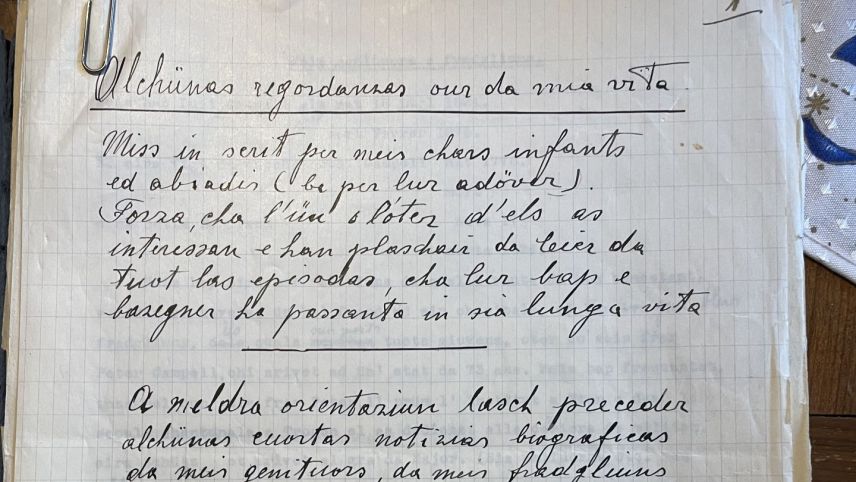 Alchünas regordanzas our da mia vita
Miss in scrit per meis chars infants
ed abiadis (be per lur adöver).
Forza, cha l'ün o lóter d'els as
interessan e han plaschair da leier da
tuot las episodas, cha lur bap e
bazegner ha passanta in sia lunga vita
A meldra orientaziun lasch preceder
alchünas cuortas notizias biograficas
da meis genituors, da meis fradgliuns